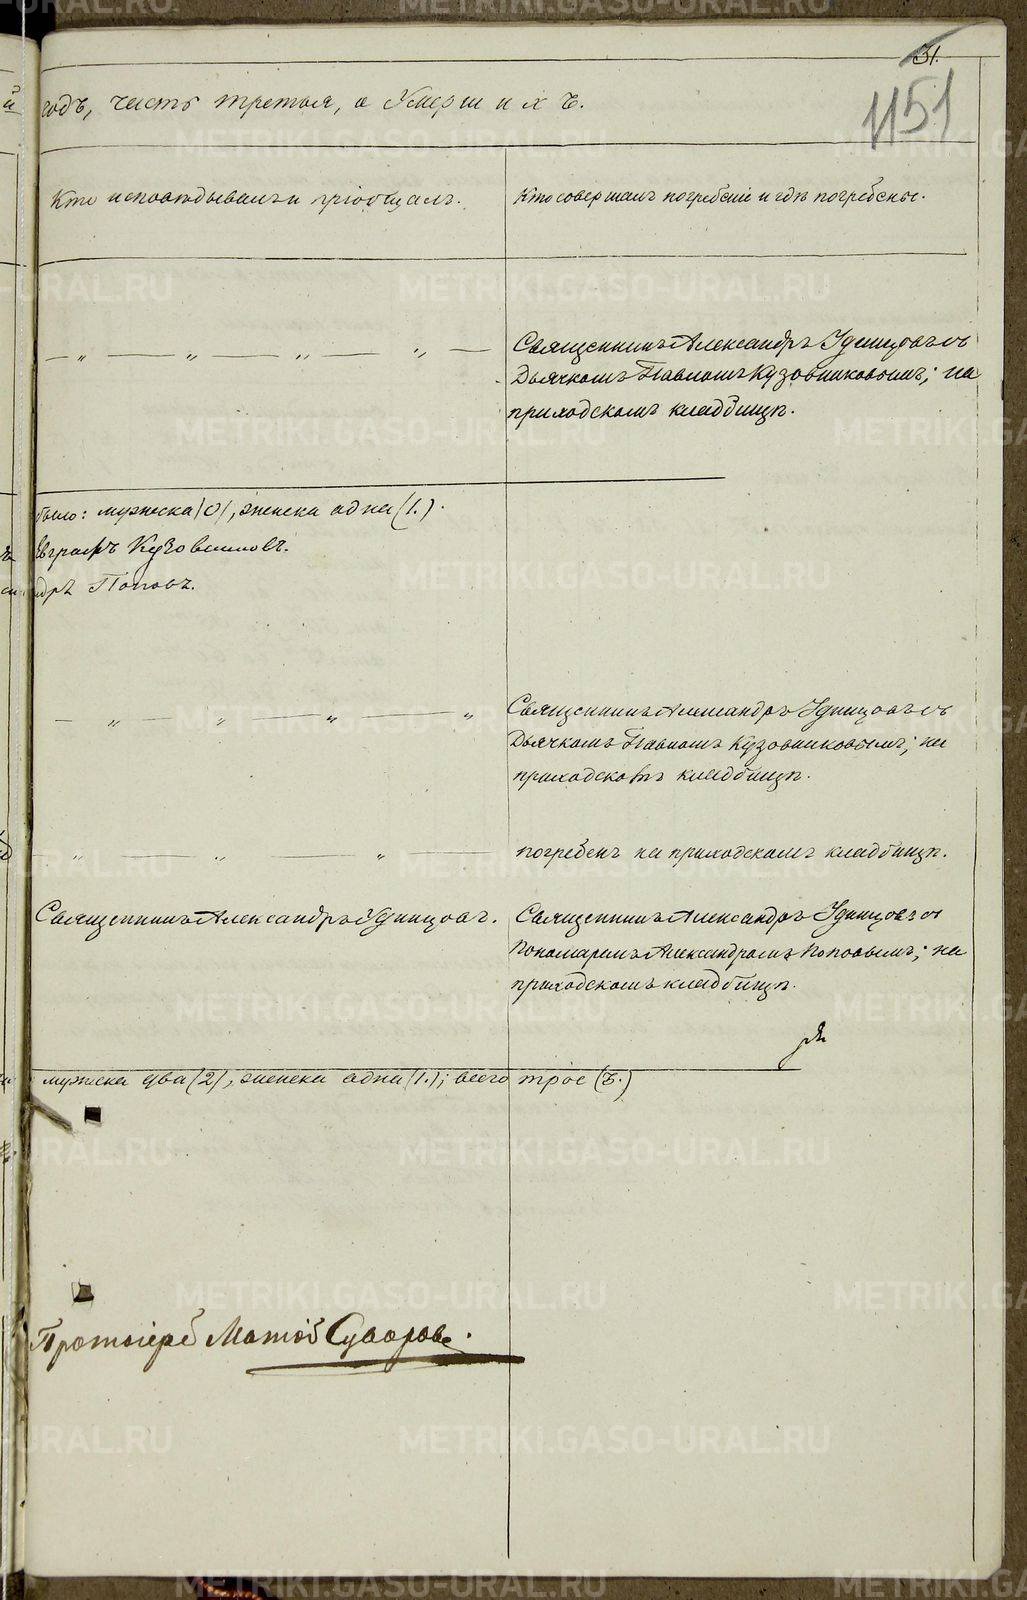 31.
1151
годъ, часть третья, о Умершихъ.
Кто исповѣдывалъ и пріобщалъ.
Кто совершалъ погребеніе и гдѣ погребены.
— „ — „ — „ — „ —
Священникъ Александръ Удинцовъ съ
Дьячкомъ Павломъ Кузовниковымъ; на
приходскомъ кладбищѣ.
было: мужеска (0), женска одна (1.).
Евграфъ Кузовниковъ.
ндръ Поповъ.
— „ — „ — „ — „
Священникъ Александръ Удинцовъ съ
Дьячкомъ Павломъ Кузовниковымъ; на
приходскомъ кладбищѣ.
„ — „ — „ —
погребенъ на приходскомъ кладбищѣ.
Священникъ Александръ Удинцовъ.
Священникъ Александръ Удинцовъ съ
Пономаремъ Александромъ Поповымъ; на
приходскомъ кладбищѣ.
мужска два (2), женска одна (1.); всего трое (3.)
Протоіерей Матѳій Суворовъ.
METRIKI.GASO-URAL.RU